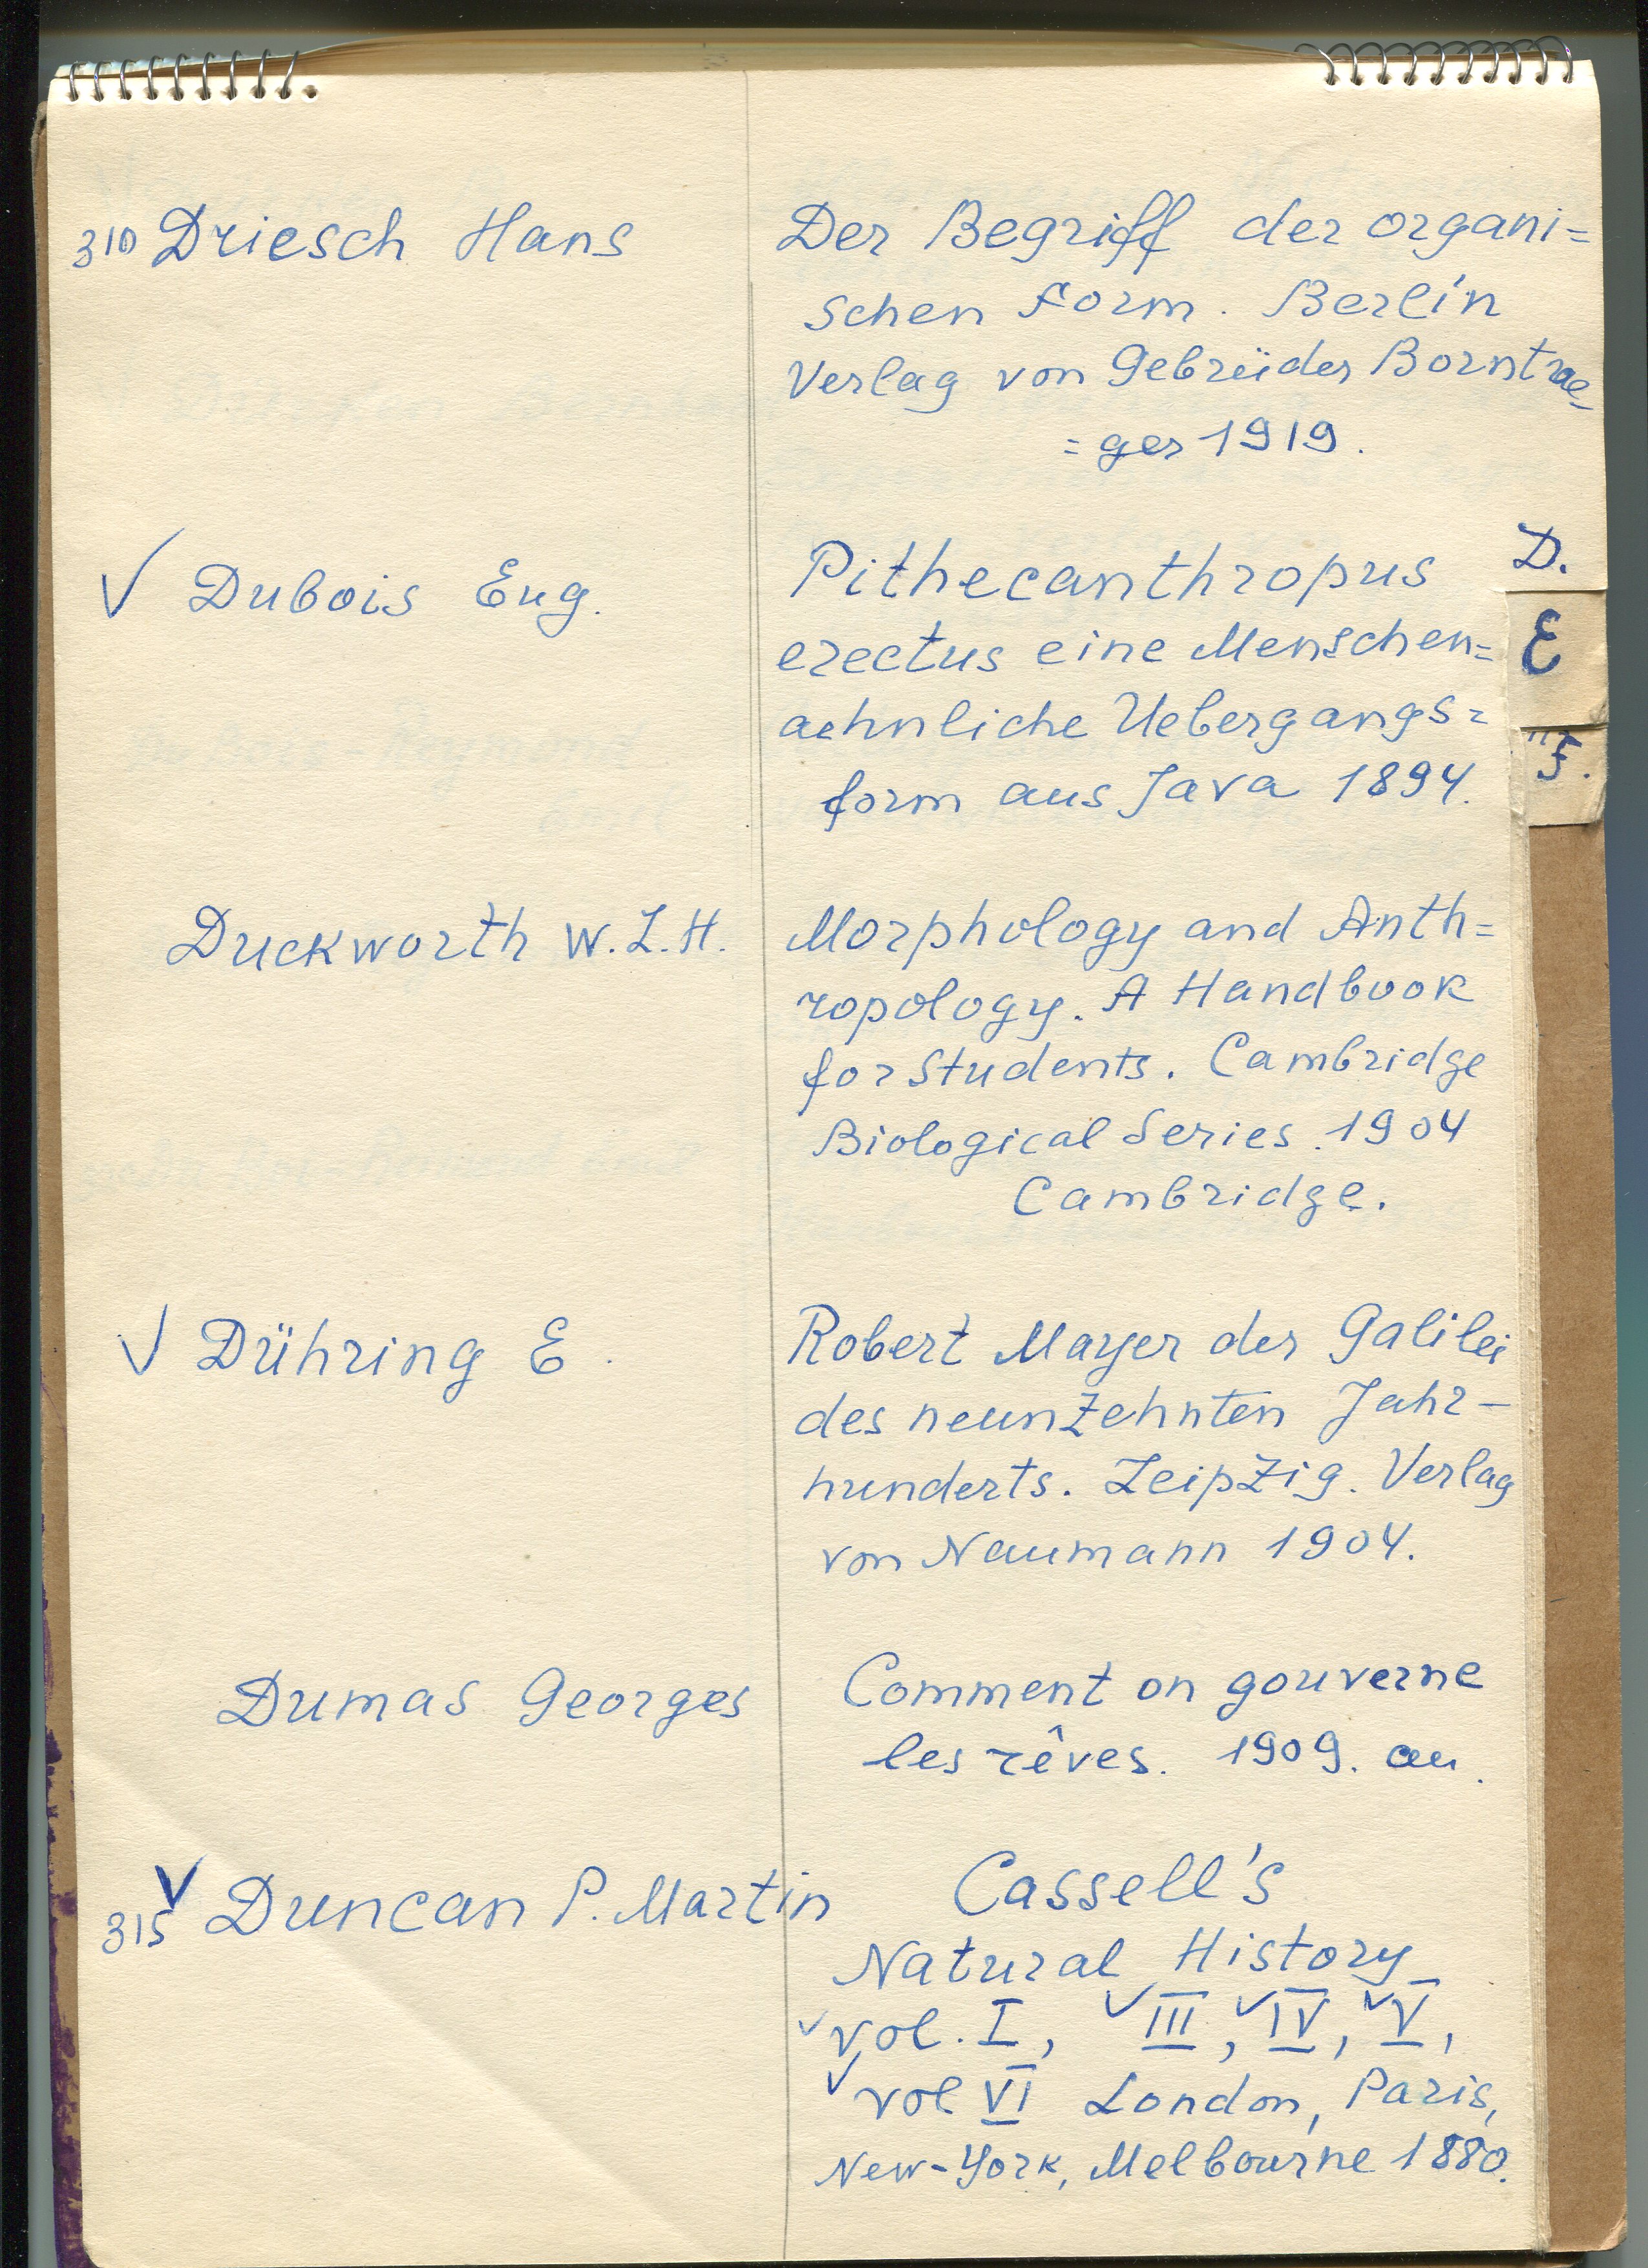 310 Driesch Hans
Der Begriff der organi=
schen Form. Berlin
Verlag von Gebrüder Borntrae=
=ger 1919.
D.
E
F.
√ Dubois Eug.
Pithecanthropus
erectus eine Menschen=
aehnliche Uebergangs=
form aus Java 1894.
Duckworth W.L.H.
Morphology and Anth=
ropology. A Handbook
for Students. Cambridge
Biological Series. 1904
Cambridge.
√ Dühring E.
Robert Mayer der Galilei
des neunzehnten Jahr-
hunderts. Leipzig. Verlag
von Naumann 1904.
Dumas Georges
Comment on gouverne
les rêves. 1909.
√
315 Duncan P. Martin
Cassell's
Natural History
√ vol. I, √ III, √ IV, √ V,
√ vol VI London, Paris,
New-York, Melbourne 1880.